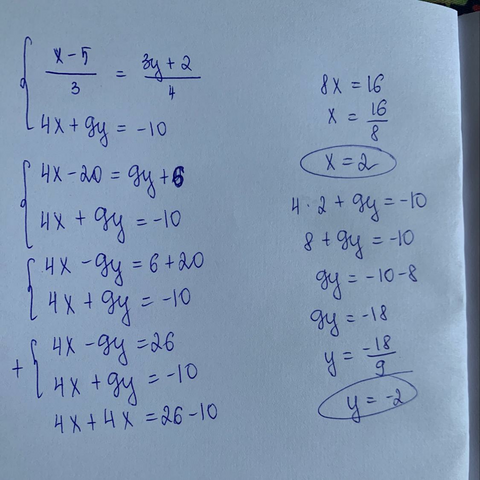 x-5/3 = 3y+2/4
4x+9y = -10
4x-20 = 9y+6
4x+9y = -10
4x-9y = 6+20
4x+9y = -10
+ 4x-9y = 26
4x+9y = -10
4x+4x = 26-10
8x = 16
x = 16/8
x = 2
4·2+9y = -10
8+9y = -10
9y = -10-8
9y = -18
y = -18/9
y = -2